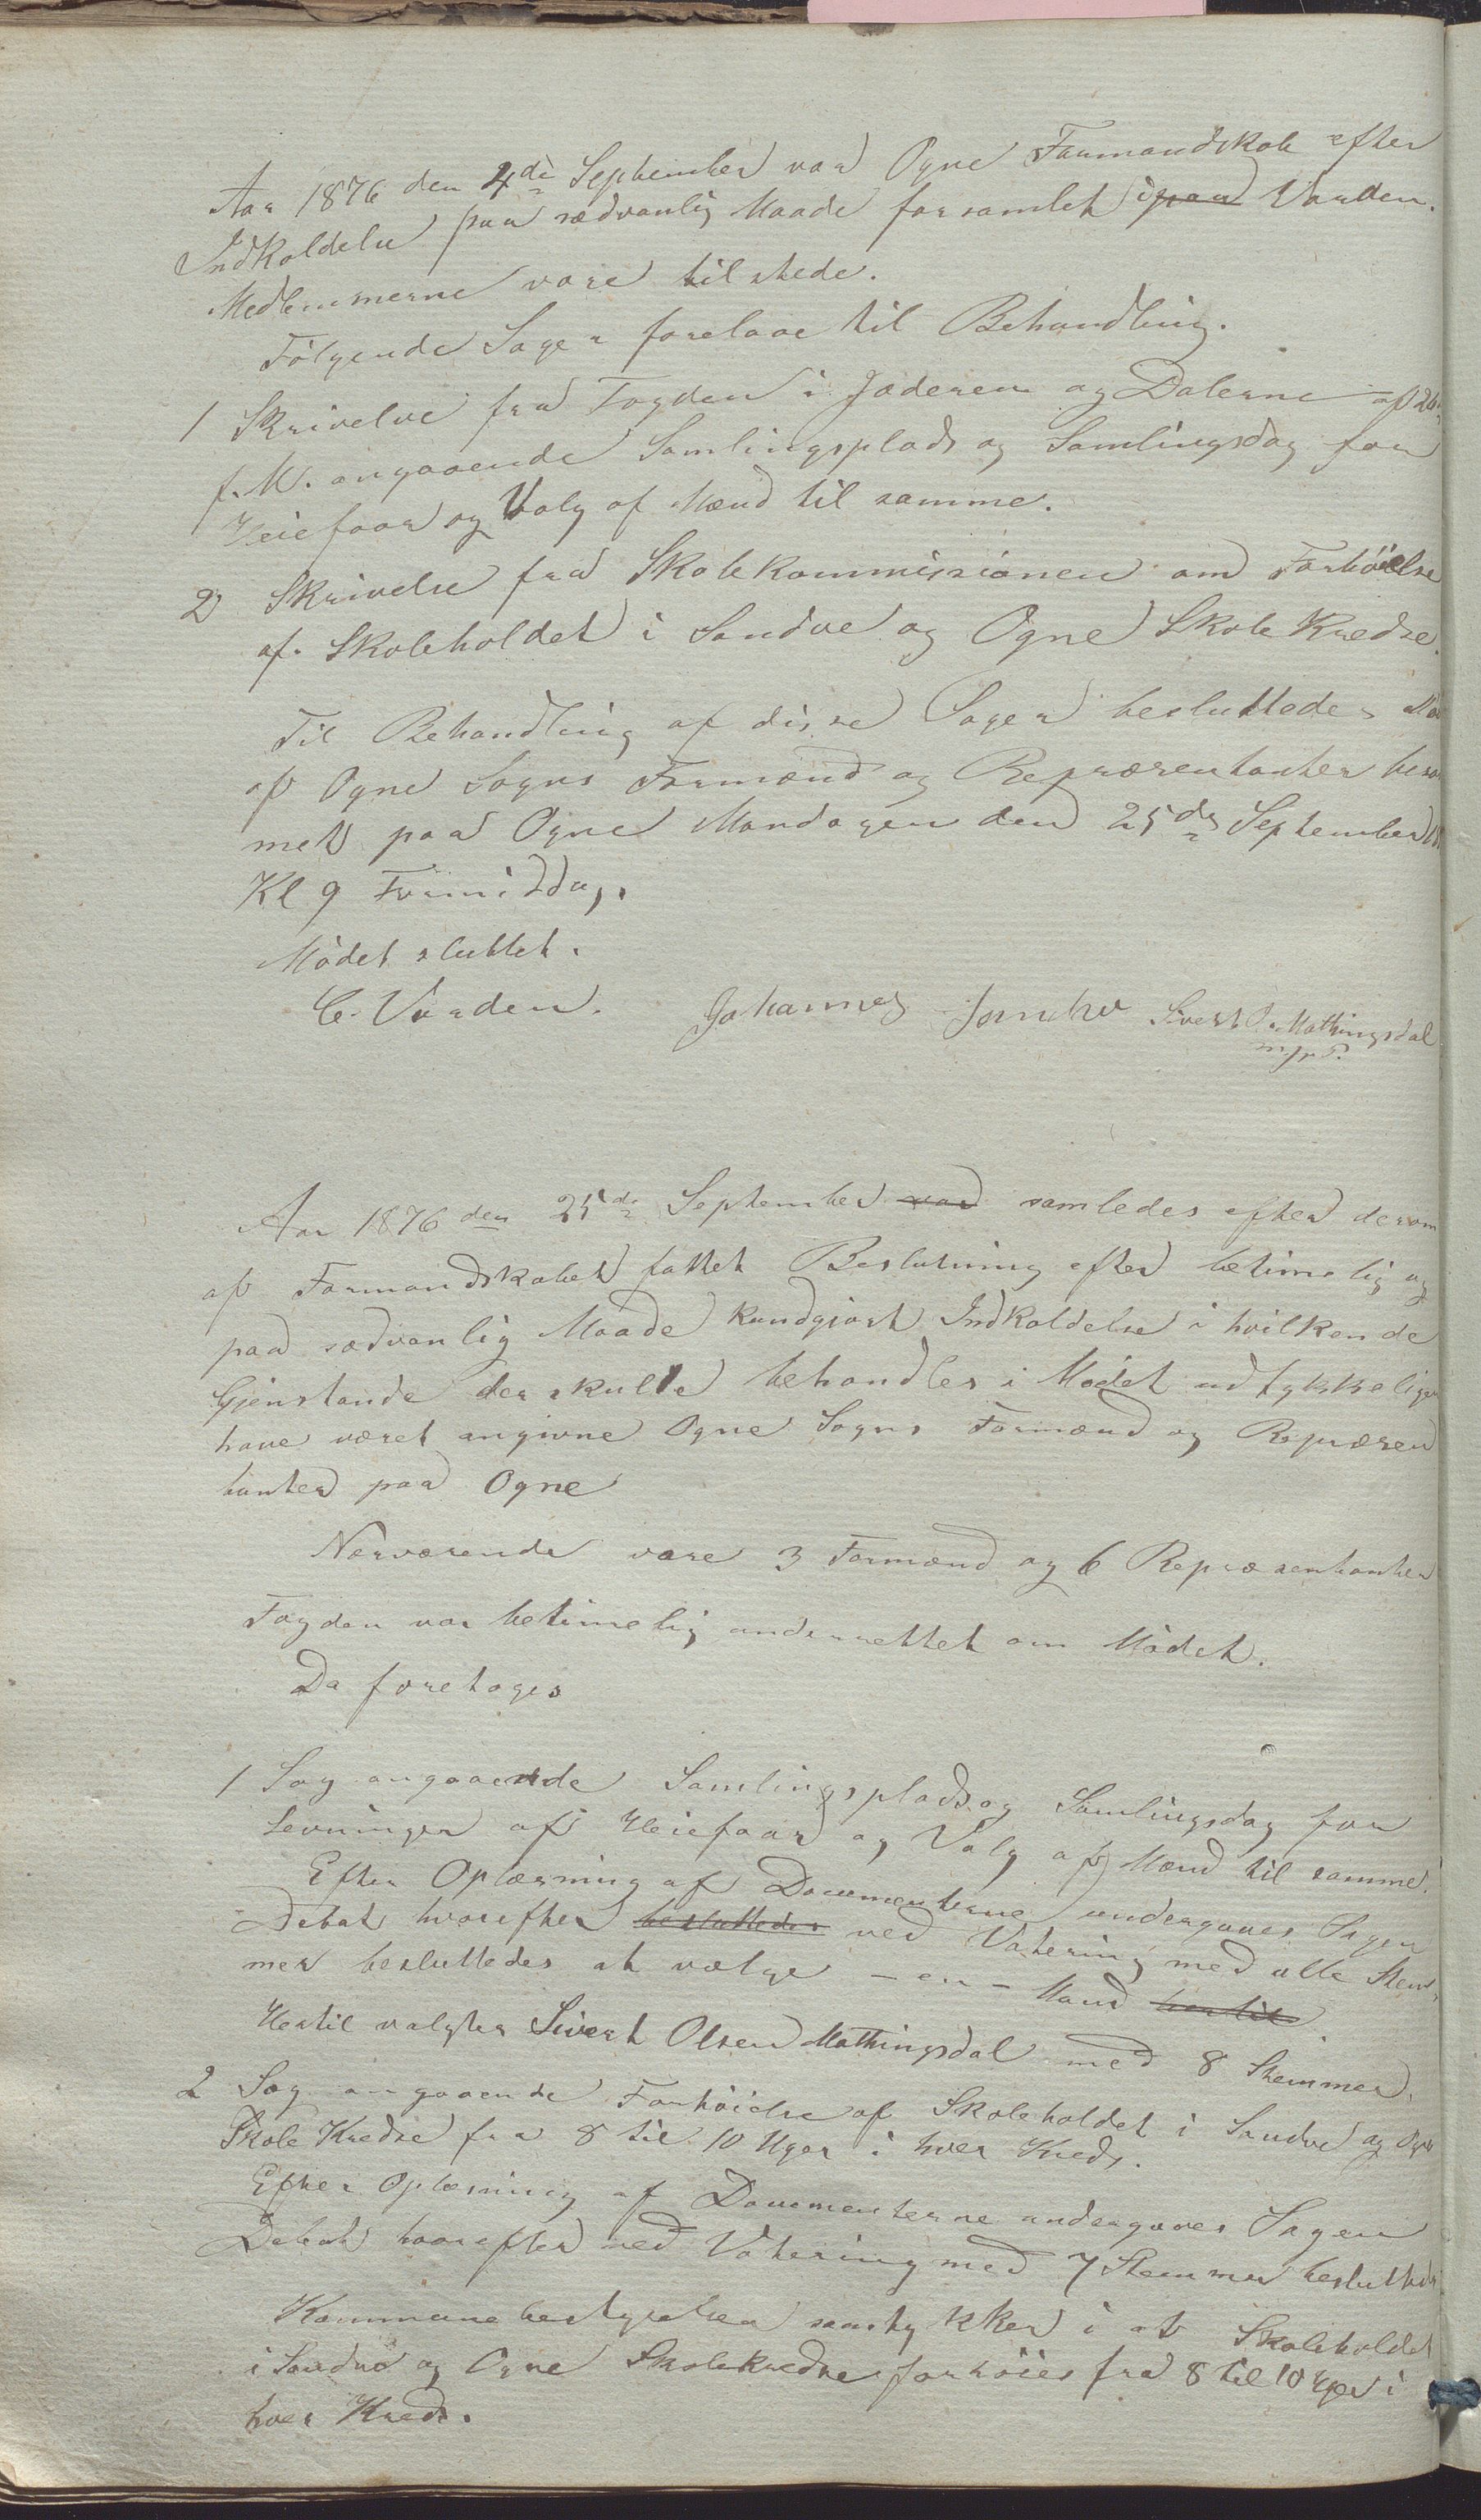 Aar 1876 den 4de September var Ogne Formandskab efter
Indkaldelse paa sædvanlig Maade forsamlet i paa Varden.
Medlemmerne vare tilstede.
Følgende Sager forelaae til Behandling.
1 Skrivelse fra Fogden i Jæderen og Dalerne af 26
f. M. angaaende Samlingsplads og Samlingsdag for
Heiefaar og Valg af Mænd til samme.
2 Skrivelse fra Skolekommissionen om Forhøielse
af Skoleholdet i Sandve og Ogne Skole Kredse.
Til Behandling af disse Sager besluttedes
af Ogne Sogns Formænd og Repræsentanter
met paa Ogne Mandagen den 25de September
Kl 9 Formiddag.
Mødet sluttet.
C. Varden. Johannes Sivert O. Mathingsdal
m/p P.
Aar 1876 den 25de September var samledes efter derom
af Formandskabet fattet Beslutning efter betimelig og
paa sædvanlig Maade kundgjort Indkaldelse i hvilken de
Gjenstande der skulle behandles i Mødet udtykkelige
have været angivne Ogne Sogns Formænd og Repræsen
tanter paa Ogne
Nærværende vare 3 Formænd og 6 Repræsentanter
Fogden var betimelig underrettet om Mødet.
Da foretoges
1 Sag angaaende Samlingsplads og Samlingsdag for
Levninger af Heiefaar og Valg af Mænd til samme.
Efter Oplæsning af Documenterne undergaves Sagen
Debat hvorefter besluttedes ved Votering med alle Stem
mer besluttedes at vælge - en - Mand hertil.
Hertil valgtes Sivert Olsen Mathingsdal med 8 Stemmer.
2 Sag angaaende Forhøielse af Skoleholdet i Sandve og Ogne
Skole Kredse fra 8 til 10 Uger i hver Kreds.
Efter Oplæsning af Documenterne undergaves Sagen
Debat hvorefter ved Votering med 7 Stemmer besluttedes
Kommunebestyrelsen samtykker i at Skoleholdet
i Sandve og Ogne Skolekredse forhøies fra 8 til 10 Uger i
hver Kreds.